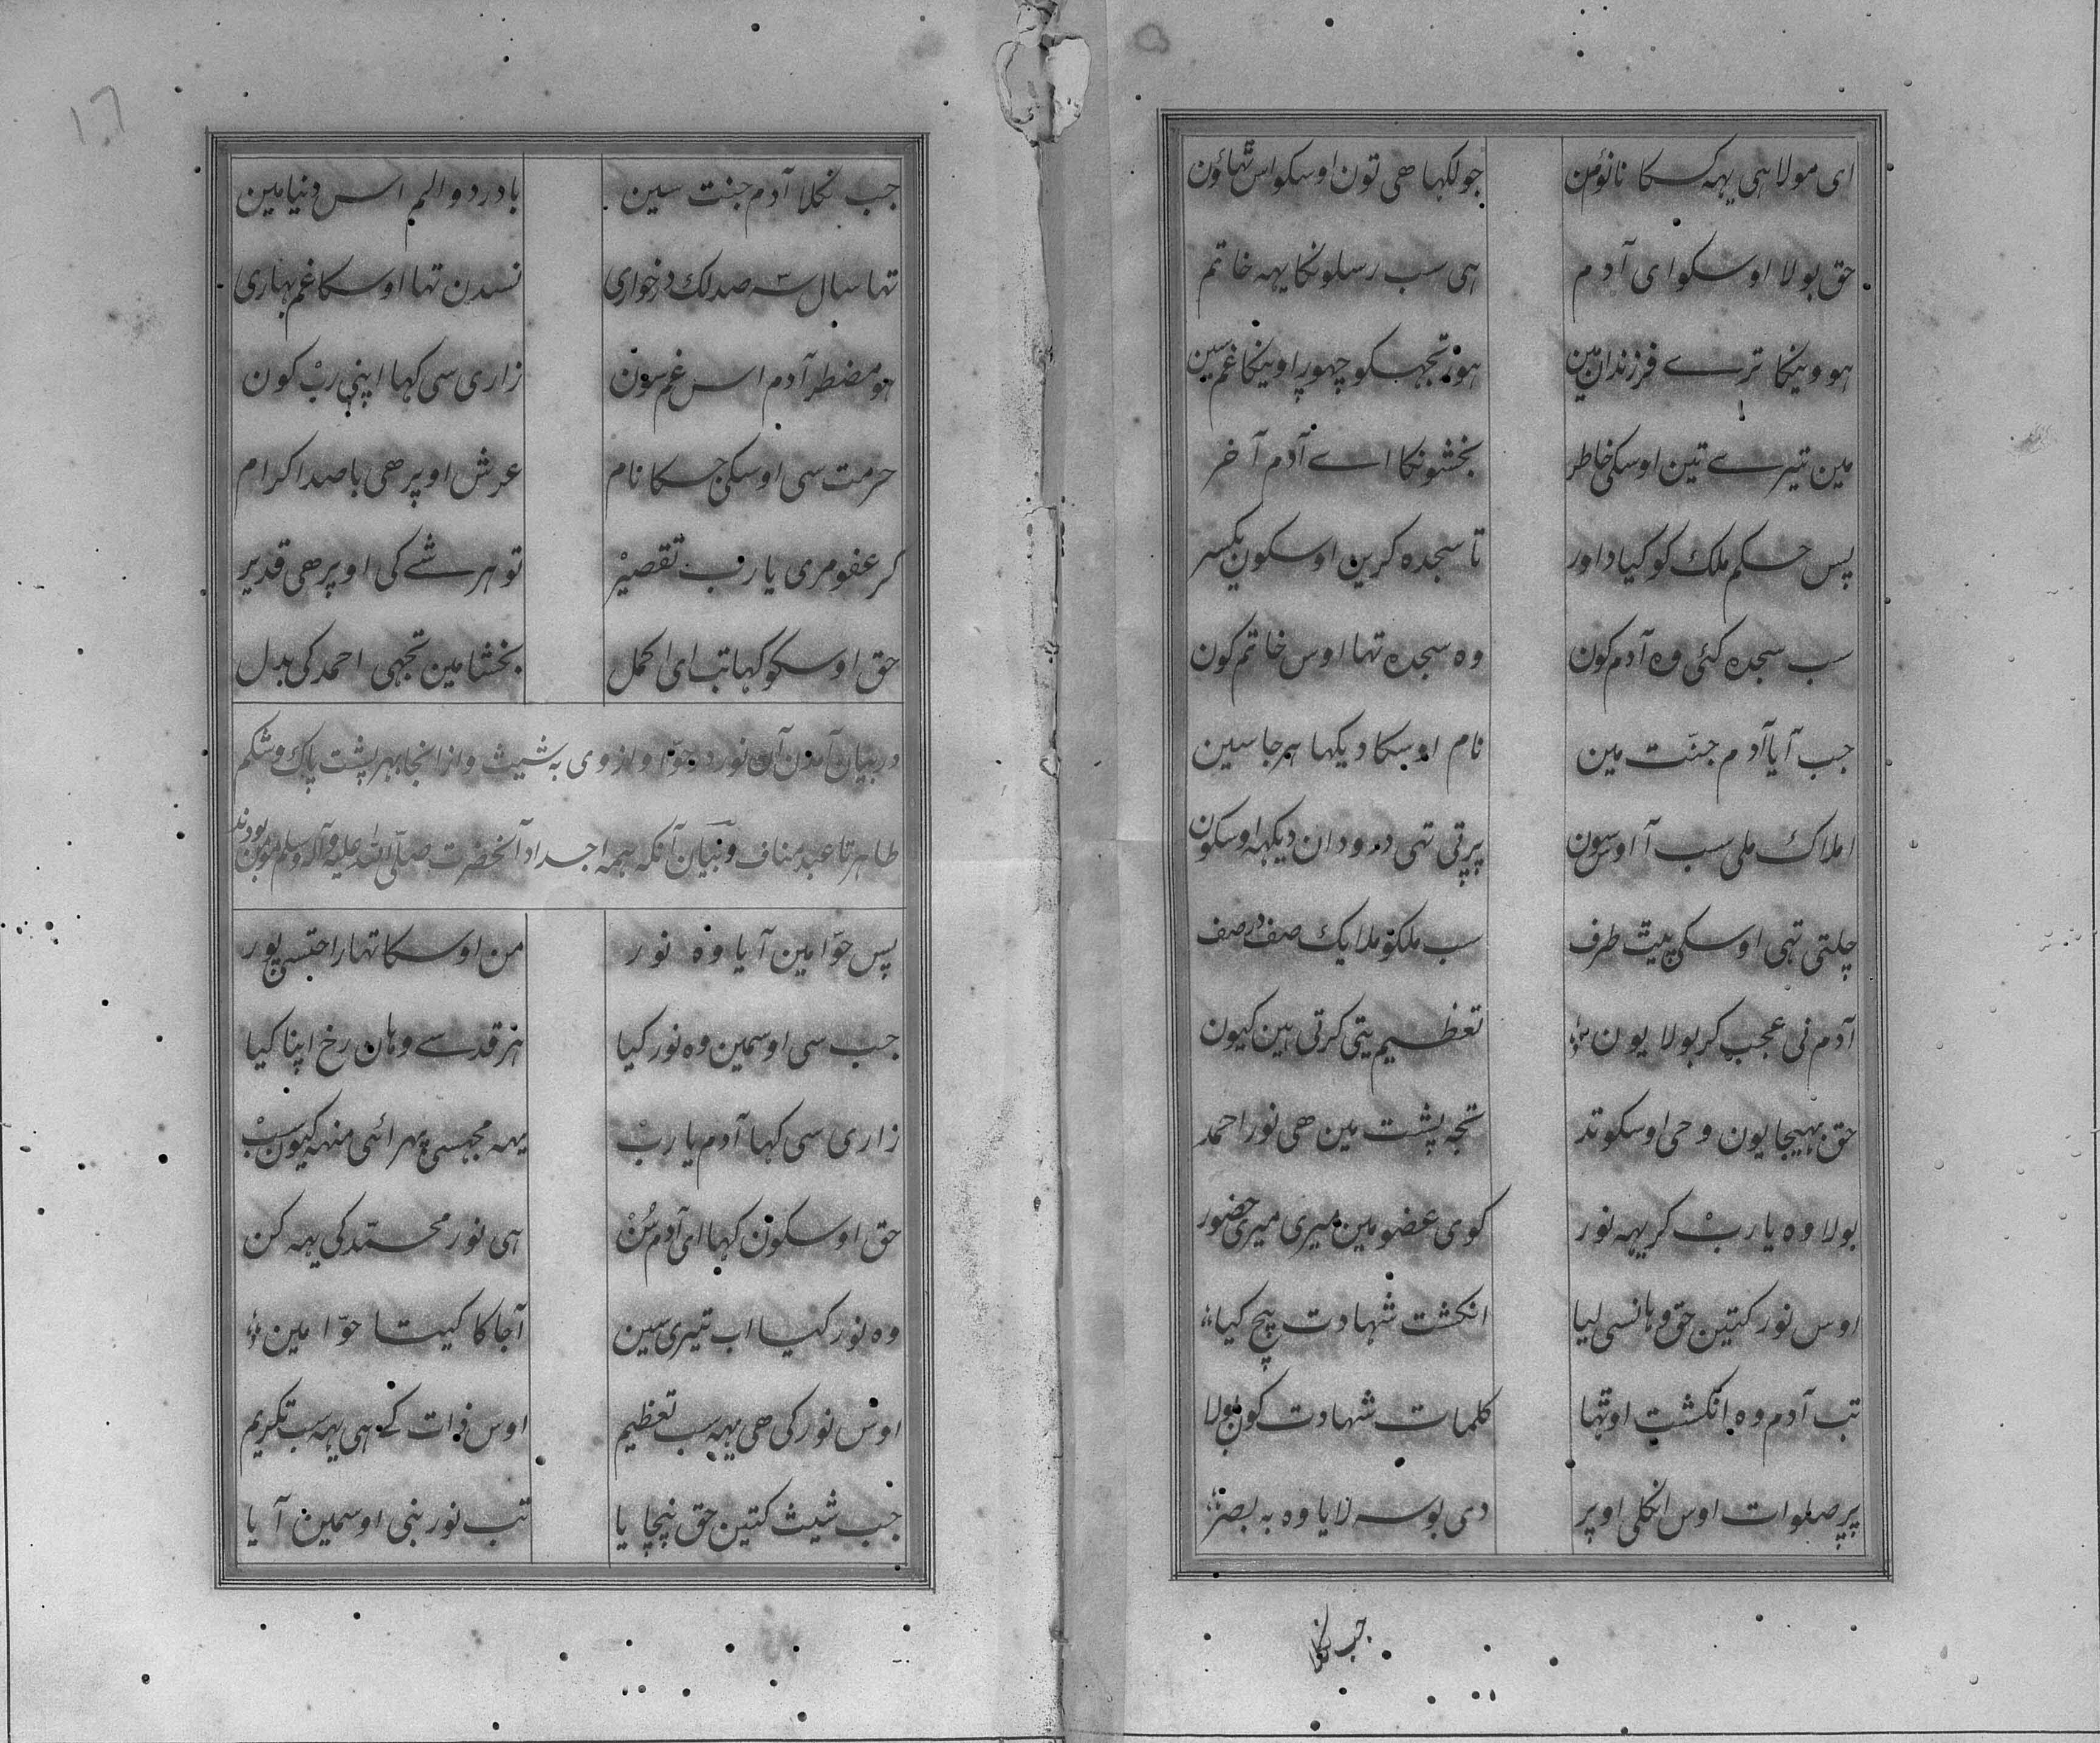 ای مولا ہی یہہ کسکا نانوٗن جو لکہا ھی تون اوسکو اس ٹہانون
حق بولا اوسکو ای آدم ہی سب رسلونکا یہہ خاتم
ہوویکا ترے فرزندان مین ہوز تجہکو چہوراوینکا غم سین
مین تیرے تین اوسکی خاطر بخشونکا اے آدم آخر
پس حکم ملک کو کیا داور تا سجدہ کرین اوسکون یکسر
سب سجدہ کئی وہ آدم کون وہ سجدہ تہا اوس خاتم کون
جب آیا آدم جنّت مین نام اوسکا دیکہا ہر جا سین
املاک ملی سب آ اوس سون پرتی تہی درودان دیکہہ اوسکون
چلتی تہی اوسکی پیٹ طرف سب ملکو ملایک صف در صف
آدم نی عجب کر بولا یون تعظیم یتی کرتی ہین کیون
حق بہیجا یون وحی اوسکو تد تجہ پشت مین ھی نور احمد
بولا وہ یا ربْ کر یہہ نور کوی عضو مین میری میری حضور
اوس نور کتین حق وہانسی لیا انکشت شہادت بیچ کیا
تب آدم وہ انکشت اوتہا کلمات شہادت کون بولا
پر صلوات اوس انکلی اوپر دی بوسہ لایا وہ بہ بصر
جب نکلا
۱۰۶
جب نکلا آدم جنت سین با درد و الم اس دنیا مین
تہا سال سہ صد لک در خواری نسدن تہا اوسکا غم بہاری
ہو مضطر آدم اس غم سون زاری سی کہا اپنی ربْ کون
حرمت سی اوسکی جسکا نام عرش اوپر ھی با صد اکرام
کر عفو مری یا رب تقصیر تو ہر شے کی اوپر ھی قدیر
حق اوسکو کہا تب ای اکمل بخشا مین تجہی احمد کی بدل
در بیان آمدن آن نور در حوّا و از وی بہ شیث و از انجا بہر پشت پاک و شکم
طاہر تا عبد مناف و بیان آنکہ ہمہ اجداد آنحضرت صلّی اللہ علیہ وآلہ وسلم مؤمن بودند
پس حوّا مین آیا وہ نور من اوسکا تہا راحت سی پور
جب سی اوسمین وہ نور کیا ہز قدسے وہان رخ اپنا کیا
زاری سی کہا آدم یا ربْ یہہ مجہسی پہرائی منہہ کیون سبْ
حق اوسکون کہا ای آدم سُنْ ہی نور محمّد کی یہہ کن
وہ نور کیا اب تیری سین آجا کا کیتا حوّا مین
اوس نور کی ھی یہہ سب تعظیم اوس ذات کے ہی یہہ سب تکریم
جب شیث کتین حق نپجایا تب نور بنی اوسمین آیا